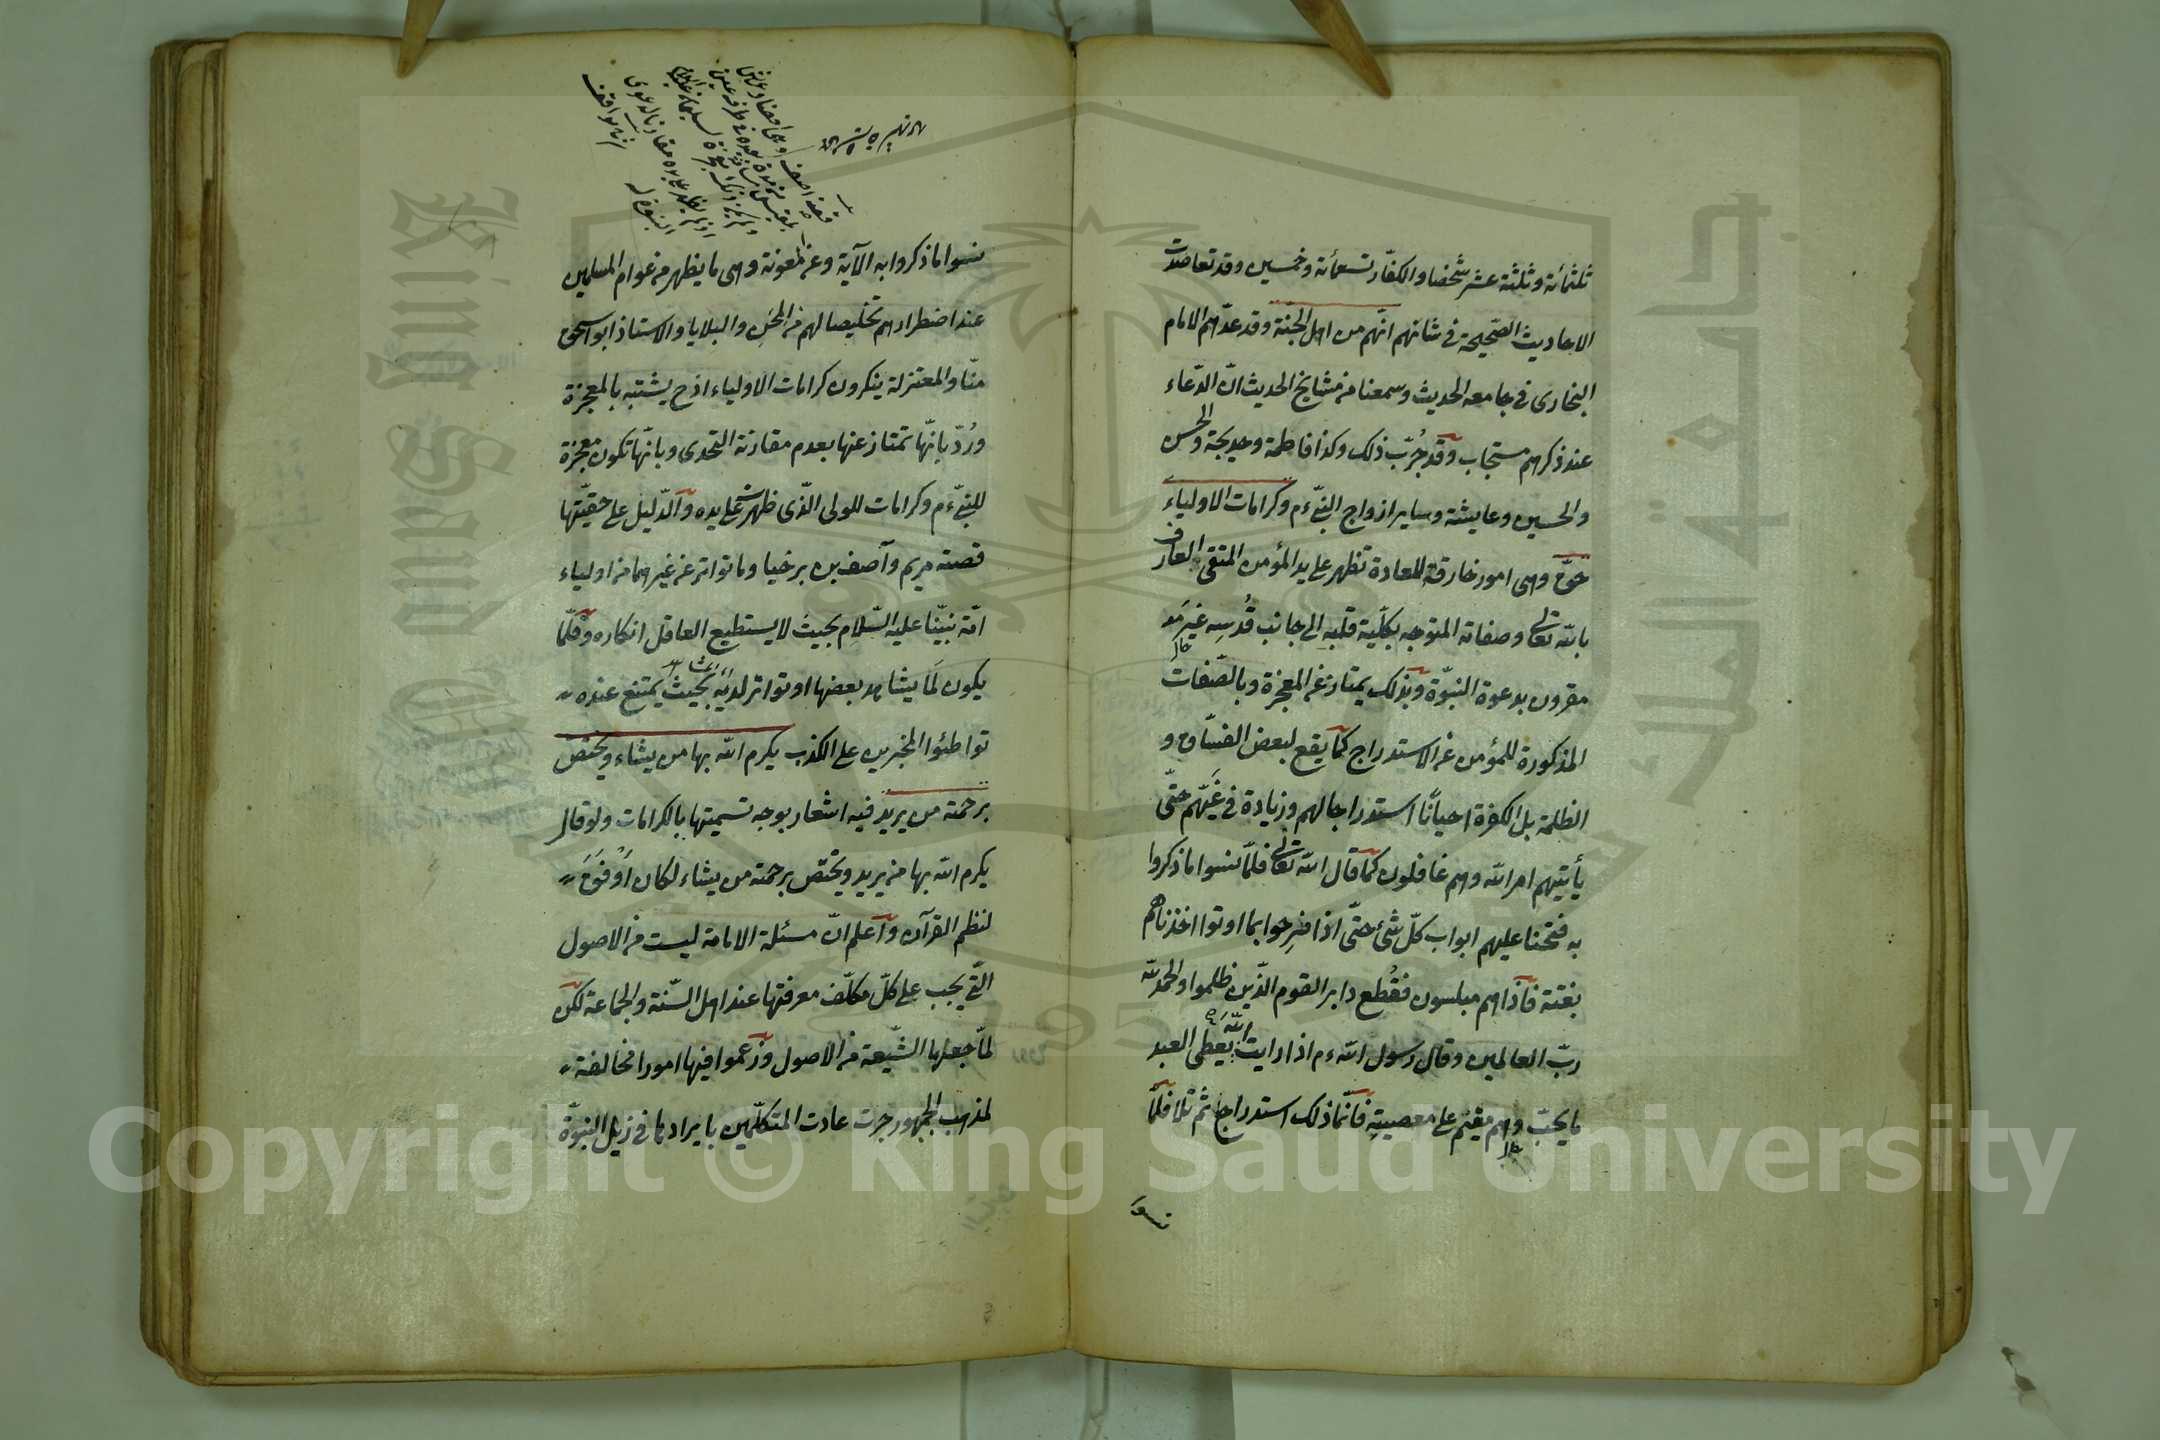 ثلثمائة وثلثة عشر شخصا والكفّار تسعمأئة وخمسين وقد تعاضدت
الاحاديث الصّحيحة في شانهم انّهم من اهل الجنّة وقد عدّهم الامام
البخارى في جامعه الحديث وسمعنا من مشايخ الحديث انّ الدّعاء
عند ذكرهم مستجاب وقد جُرّب ذلك وكذا فاطمة وخديجة والحسن
والحسين وعايشة وساير ازواج النبيّ ءم وكرامات الاولياء
حقّ وهى امور خارقة للعادة تظهر على يد المؤمن المتقى العارف
بالله تعالى وصفاته المتوجه بكلّية قلبه الى جانب قُدسِه غيرَ
مقرون بدعوة النبوّة وبذلك يمتاز عن المعجزة وبالصّفات
المذكورة للمؤمن عن الاستدراج كما يقع لبعض الفسّاق و
الظلمة بل الكفرة احيانًا استدراجا لهم وزيادة في غَيّهم حتّى
يأتيهم امر الله وهم غافلون كما قال الله تعالى فلمّا نسوا ما ذكروا
به فتحنا عليهم ابواب كلّ شئ حتّى اذا فرحوا بما اوتوا اخذناهم
بغتة فاذا هم مبلسون فقُطع دابر القوم الّذين ظلموا والحمد لله
ربّ العالمين وقال رسول الله ءم اذا رايت الله يعطى العبد
ما يحبّ وهم مقيم على معصيته فانّما ذلك استدراج ثم تلا فلمّا
نسوا
نسوا ما ذكروا به الآية وعن المعونة وهى ما يظهر من عوام المسلمين
عند اضطرارهم تخليصا لهم من المحن والبلايا والاستاذ ابو اسحق
منّا والمعتزلة ينكرون كرامات الاولياء اذ ح يشتبه بالمعجزة
ورُدّ بانّها تمتاز عنها بعدم مقارنة التحدى وبانّها تكون معجزة
للنبيّ ءم وكرامات للولى الّذى ظهرت على يده والدّليل على حقيّتها
قصة مريم وآصف بن برخيا وما تواتر عن غيرهما من اولياء
امّة نبيّنا عليه السّلام بحيث لا يستطيع العاقل انكاره وقلّما
يكون لَمْ يشاهد بعضها او تواتر لديه بحيث يمتنع عنده
تواطئوا المخبرين على الكذب يكرم الله بها من يشاء ويختصّ
برحمته من يريد فيه اشعار بوجه تسميتها بالكرامات ولو قال
يكرم الله بها من يريد ويختصّ برحمته من يشاء لكان اَوْفَقَ
لنظم القرآن واعلم انّ مسئلة الامامة ليست من الاصول
الّتي يجب على كلّ مكلّف معرفتها عند اهل السّنة والجماعة لكن
لمّا جعلها الشّيعة من الاصول وزعموا فيها امورا مخالفة
لمذهب الجمهور جرت عادت المتكلّمين بايرادها في ذيل النبوّة
Copyright © King Saud University
King Saud University
جامعة الملك سعود
1957